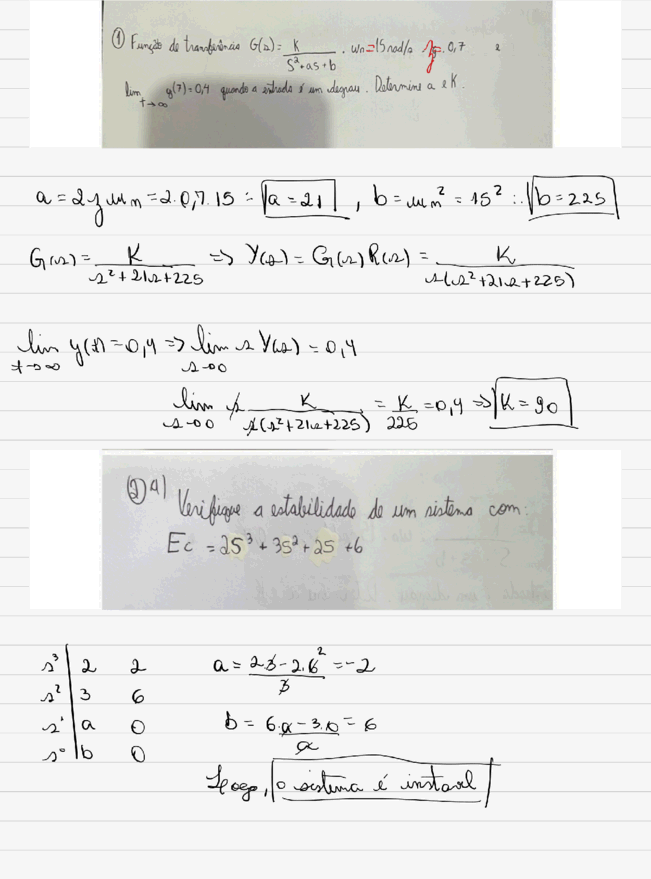 ① Função de transferência G(s) = K / (S² + as + b) . ωn = 15 rad/s ζ = 0,7 e
lim t→∞ y(7) = 0,4 quando a entrada é um degrau. Determine a e K.
a = 2ζωn = 2.0,7.15 ∴ a = 21 , b = ωn² = 15² ∴ b = 225
G(s) = K / (s² + 21s + 225) => Y(s) = G(s)R(s) = K / (s(s² + 21s + 225))
lim t→∞ y(t) = 0,4 => lim s→0 s Y(s) = 0,4
lim s→0 s K / (s(s² + 21s + 225)) = K/225 = 0,4 => K = 90
② 4) Verifique a estabilidade de um sistema com:
Ec = 2S³ + 3S² + 2S + 6
s³ | 2 2 a = (2.3 - 2.6²)/3 = -2
s² | 3 6
s¹ | a 0 b = (6.a - 3.0)/a = 6
s⁰ | b 0
Logo, o sistema é instavel